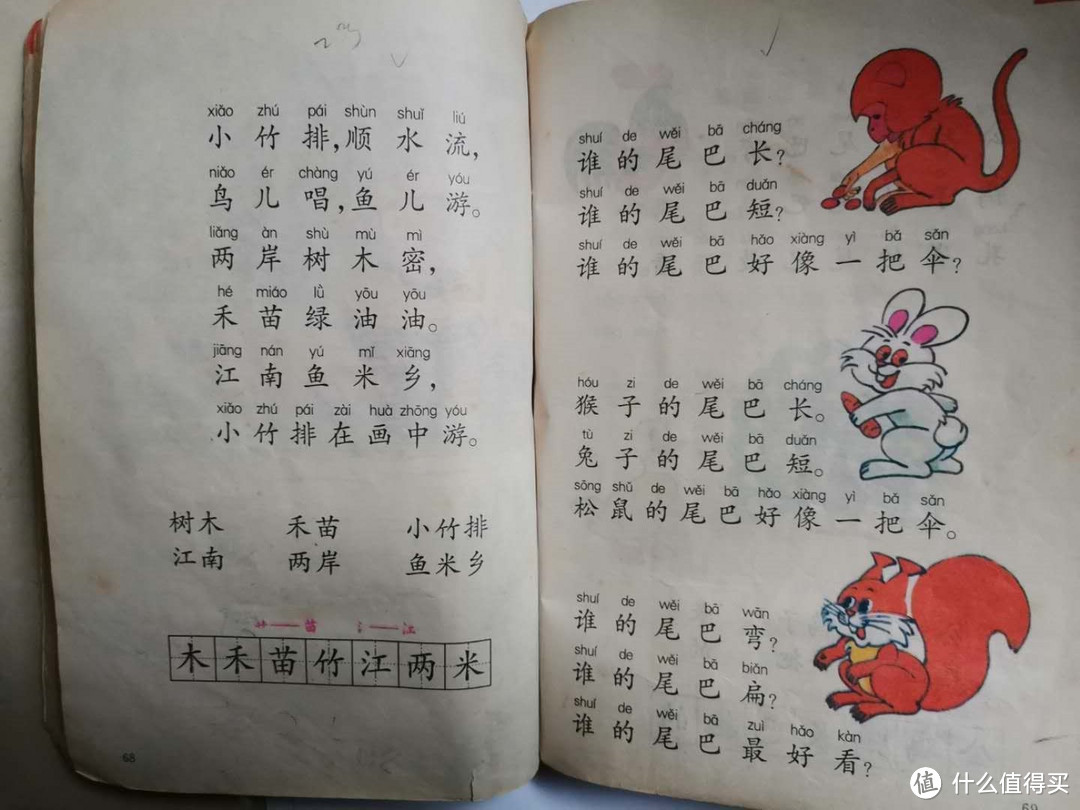 xiǎo zhú pái shùn shuǐ liú
小竹排，顺水流，
niǎo ér chàng yú ér yóu
鸟儿唱，鱼儿游。
liǎng àn shù mù mì
两岸树木密，
hé miáo lǜ yōu yōu
禾苗绿油油。
jiāng nán yú mǐ xiāng
江南鱼米乡，
xiǎo zhú pái zài huà zhōng yóu
小竹排在画中游。
树木 禾苗 小竹排
江南 两岸 鱼米乡
艹——苗 氵——江
木禾苗竹江两米
68
shuí de wěi bā cháng
谁的尾巴长？
shuí de wěi bā duǎn
谁的尾巴短？
shuí de wěi bā hǎo xiàng yì bǎ sǎn
谁的尾巴好像一把伞？
hóu zi de wěi bā cháng
猴子的尾巴长。
tù zi de wěi bā duǎn
兔子的尾巴短。
sōng shǔ de wěi bā hǎo xiàng yì bǎ sǎn
松鼠的尾巴好像一把伞。
shuí de wěi bā wān
谁的尾巴弯？
shuí de wěi bā biǎn
谁的尾巴扁？
shuí de wěi bā zuì hǎo kàn
谁的尾巴最好看？
69
值 什么值得买